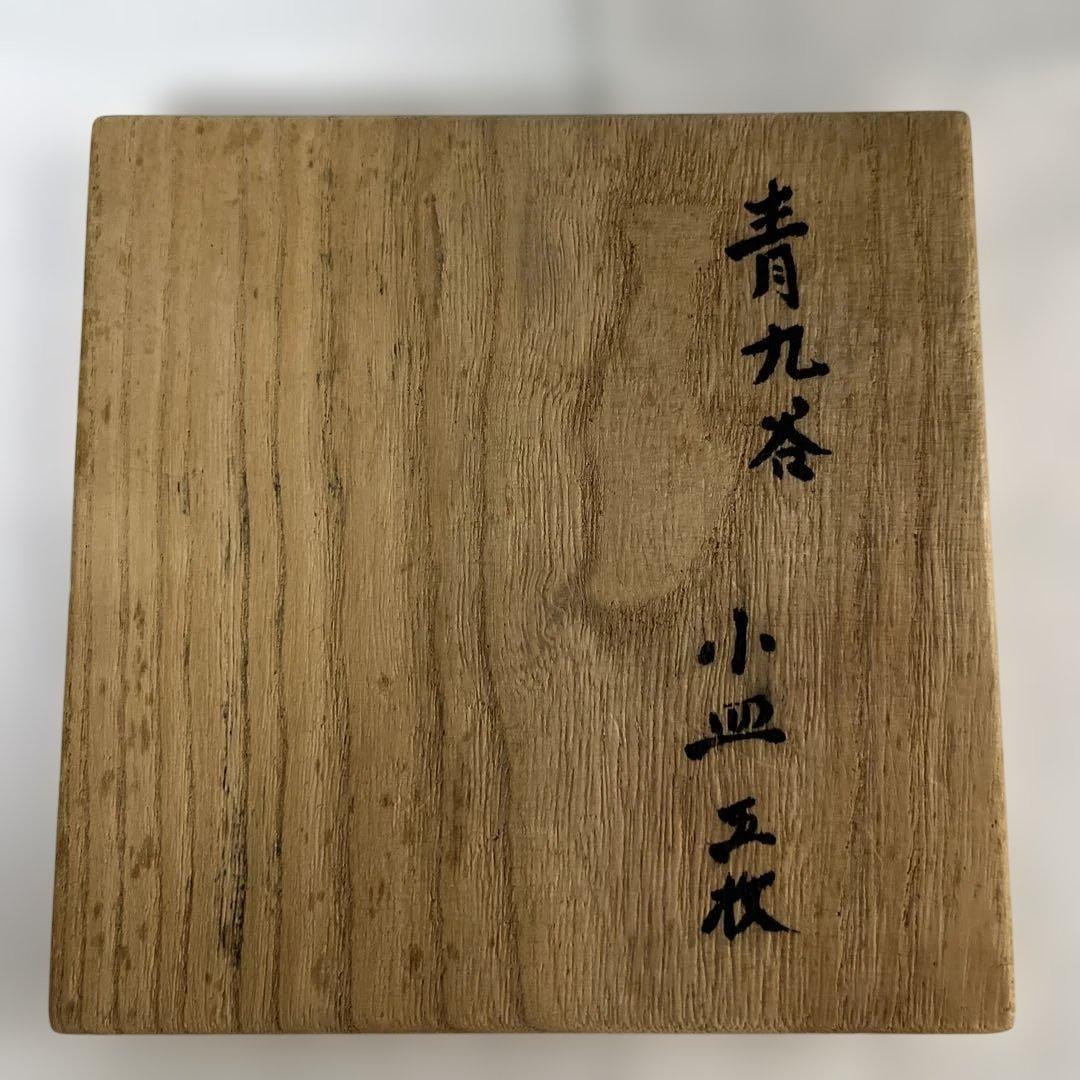 青九谷
小皿 五枚